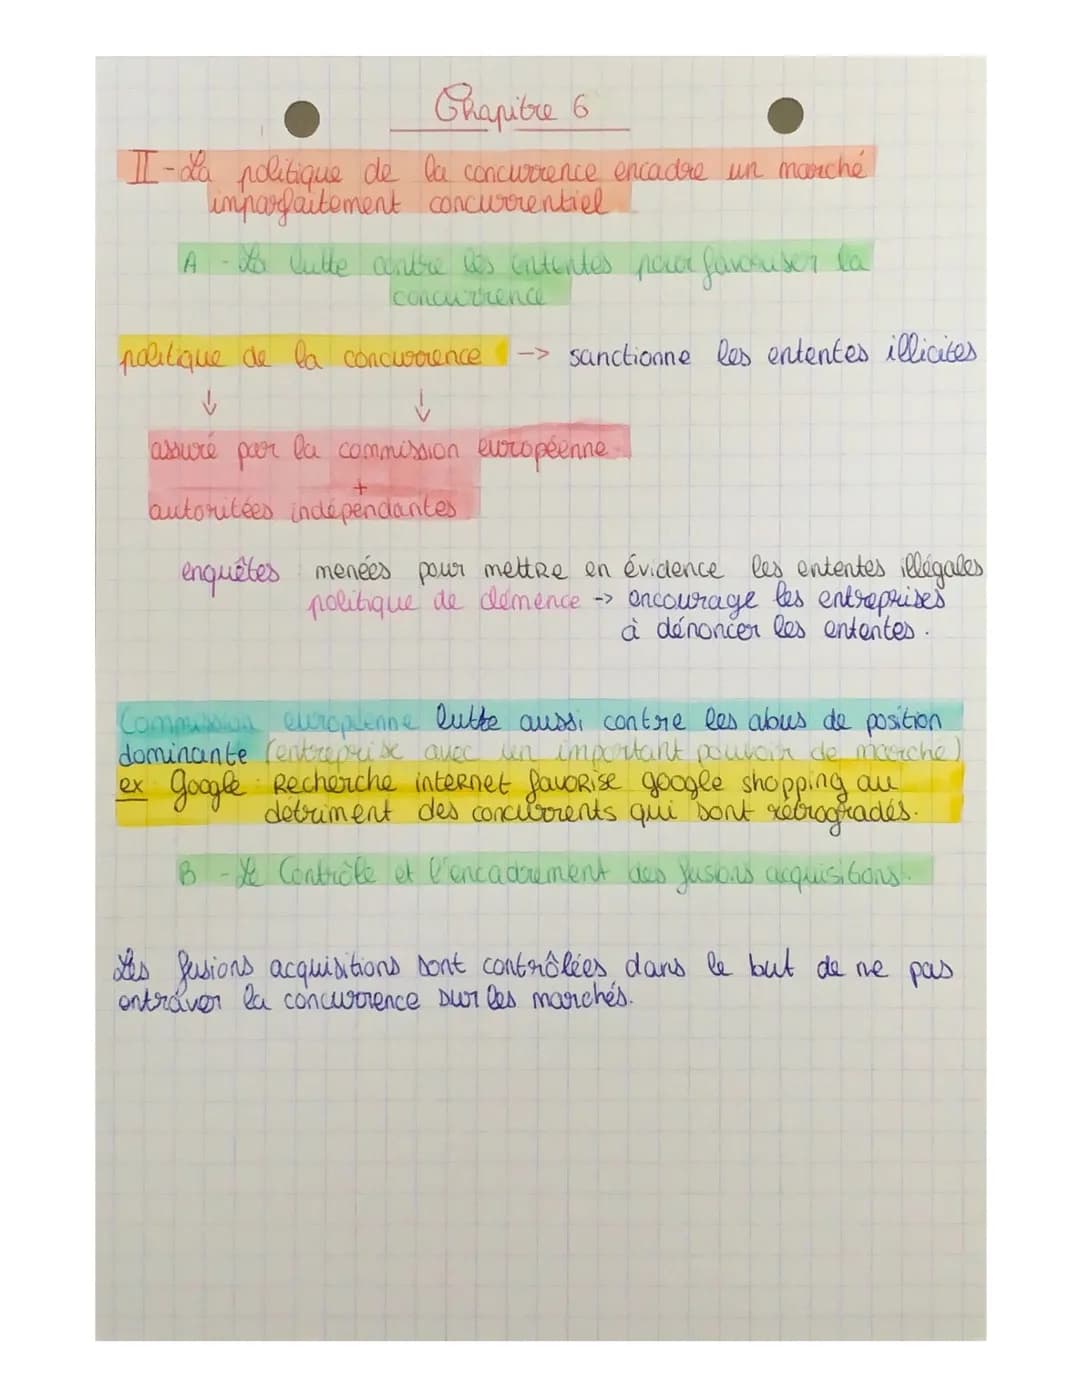 Chapitre 6
II - La politique de la concurrence encadre un marché
imparfaitement concurrentiel
A - La lutte contre les ententes pour favouriser la
concurrence
politique de la concurrence -> sanctionne les ententes illicites
↓ ↓
assuré par la commission européenne
+
autoritées indépendantes
enquêtes menées pour mettre en évidence les ententes illégales
politique de clémence -> encourage les entreprises
à dénoncer les ententes.
Commission européenne lutte aussi contre les abus de position
dominante (entreprise avec un important pouvoir de marché)
ex Google : Recherche internet favorise google shopping au
detriment des concurrents qui sont rétrogradés.
B - Le Contrôle et l'encadrement des fusions acquisitions.
Les fusions acquisitions sont contrôlées dans le but de ne pas
entraver la concurrence sur les marchés.